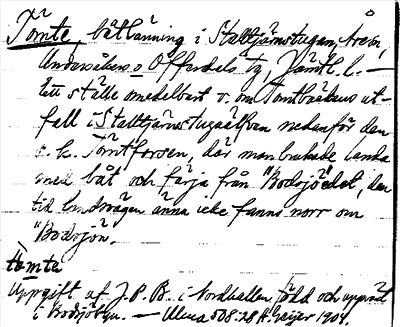 Tömte, båtlänning i Stalltjärnstugan, 
Undersåkers o Offerdals tg, Jämtl. l. —
Ett ställe omedelbart v. om Tömtbäckens ut-
fall i Stalltjärnstugeälven nedanför den
s. k. Tömtforsen, där man brukade landa
med båt och färja från "Bodsjöedet", den
tid landsvägen änna icke fanns norr om
"Bodsjön.
tömte
Uppgift af J. P. B. i Nordhallen, född och uppväxt
i Bodsjöbyn. — Ulma 508:28 H. Geijer 1904.